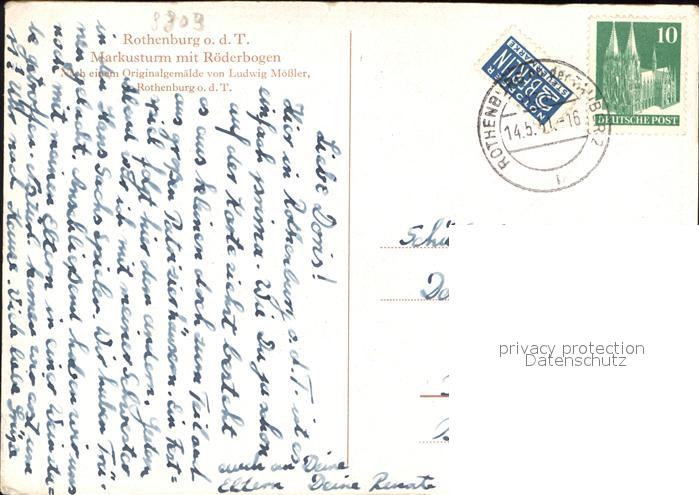 8803
Rothenburg o. d. T.
Markusturm mit Röderbogen
Nach einem Originalgemälde von Ludwig Mößler,
Rothenburg o. d. T.
NOTOPFER
2 BERLIN
STEUERMARKE
10
DEUTSCHE POST
ROTHENBURG ob der TAUBER
14.5. -16
Schü
privacy protection
Datenschutz
Liebe Doris!
Hier in Rothenburg o. d. T. ist es
einfach prima. Wie Du ja schon
auf der Karte siehst besteht
es aus kleinen doch zum Teil auf
aus großen Patrizierhäusern. Ein Fest=
spiel folgt hier dem andern. Jeden
Abend war ich mit meiner Schwester
in den Hans Sachs Spielen. Wir haben Trä=
nen gelacht. Anschließend haben wir uns
noch mit meinen Eltern in einer Weinstu=
be getroffen. Natürl. kamen wir erst um
Uhr nach Hause. Viele liebe Grüße
auch an Deine
Eltern Deine Renate